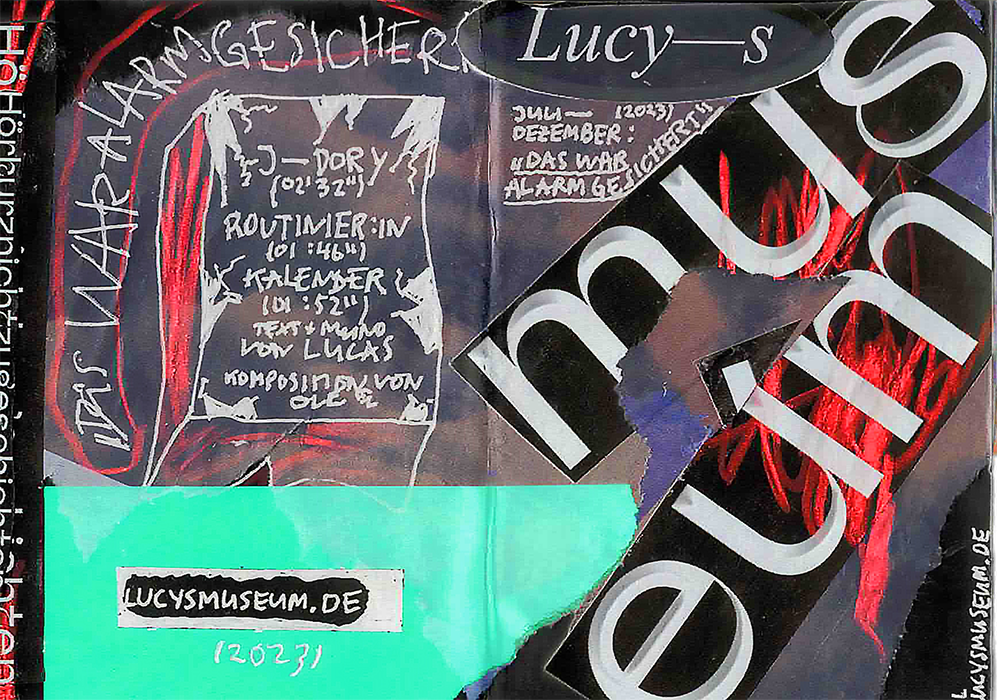 „DAS WAR ALARMGESICHER
J—DORY
(02'32")
ROUTINIER:IN
(01:46")
KALENDER
(01:52")
TEXT + MUND
VON LUCAS
KOMPOSITION VON
OLE
LUCYSMUSEUM.DE
(2023)
Lucy—s
JULI— (2023)
DEZEMBER:
„DAS WAR
ALARMGESICHERT"
mus
eum
LUCYSMUSEUM.DE